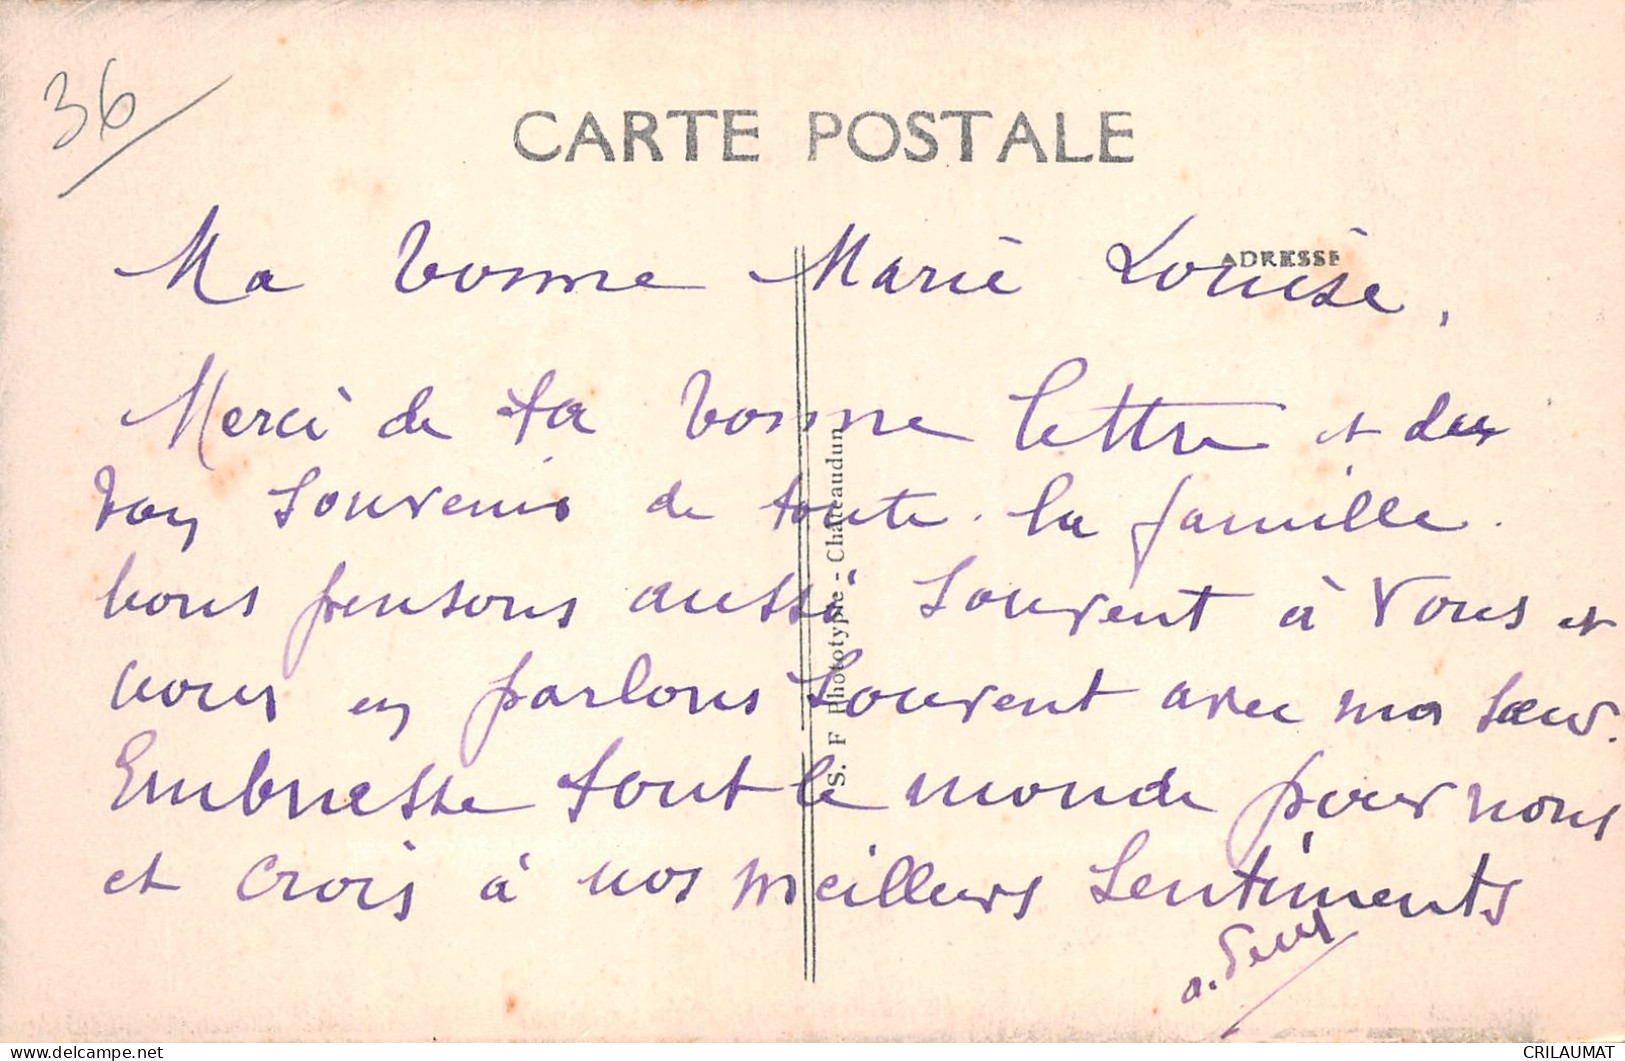 36
CARTE POSTALE
ADRESSE
Ma bonne Marie Louise,
Merci de ta bonne lettre et du
bon souvenir de toute la famille.
nous pensons aussi souvent à vous et
nous en parlons souvent avec ma sœur.
Embrasse tout le monde pour nous
et crois à nos meilleurs sentiments
S. F Phototypie - Chateaudun
delcampe.net
CRILAUMAT